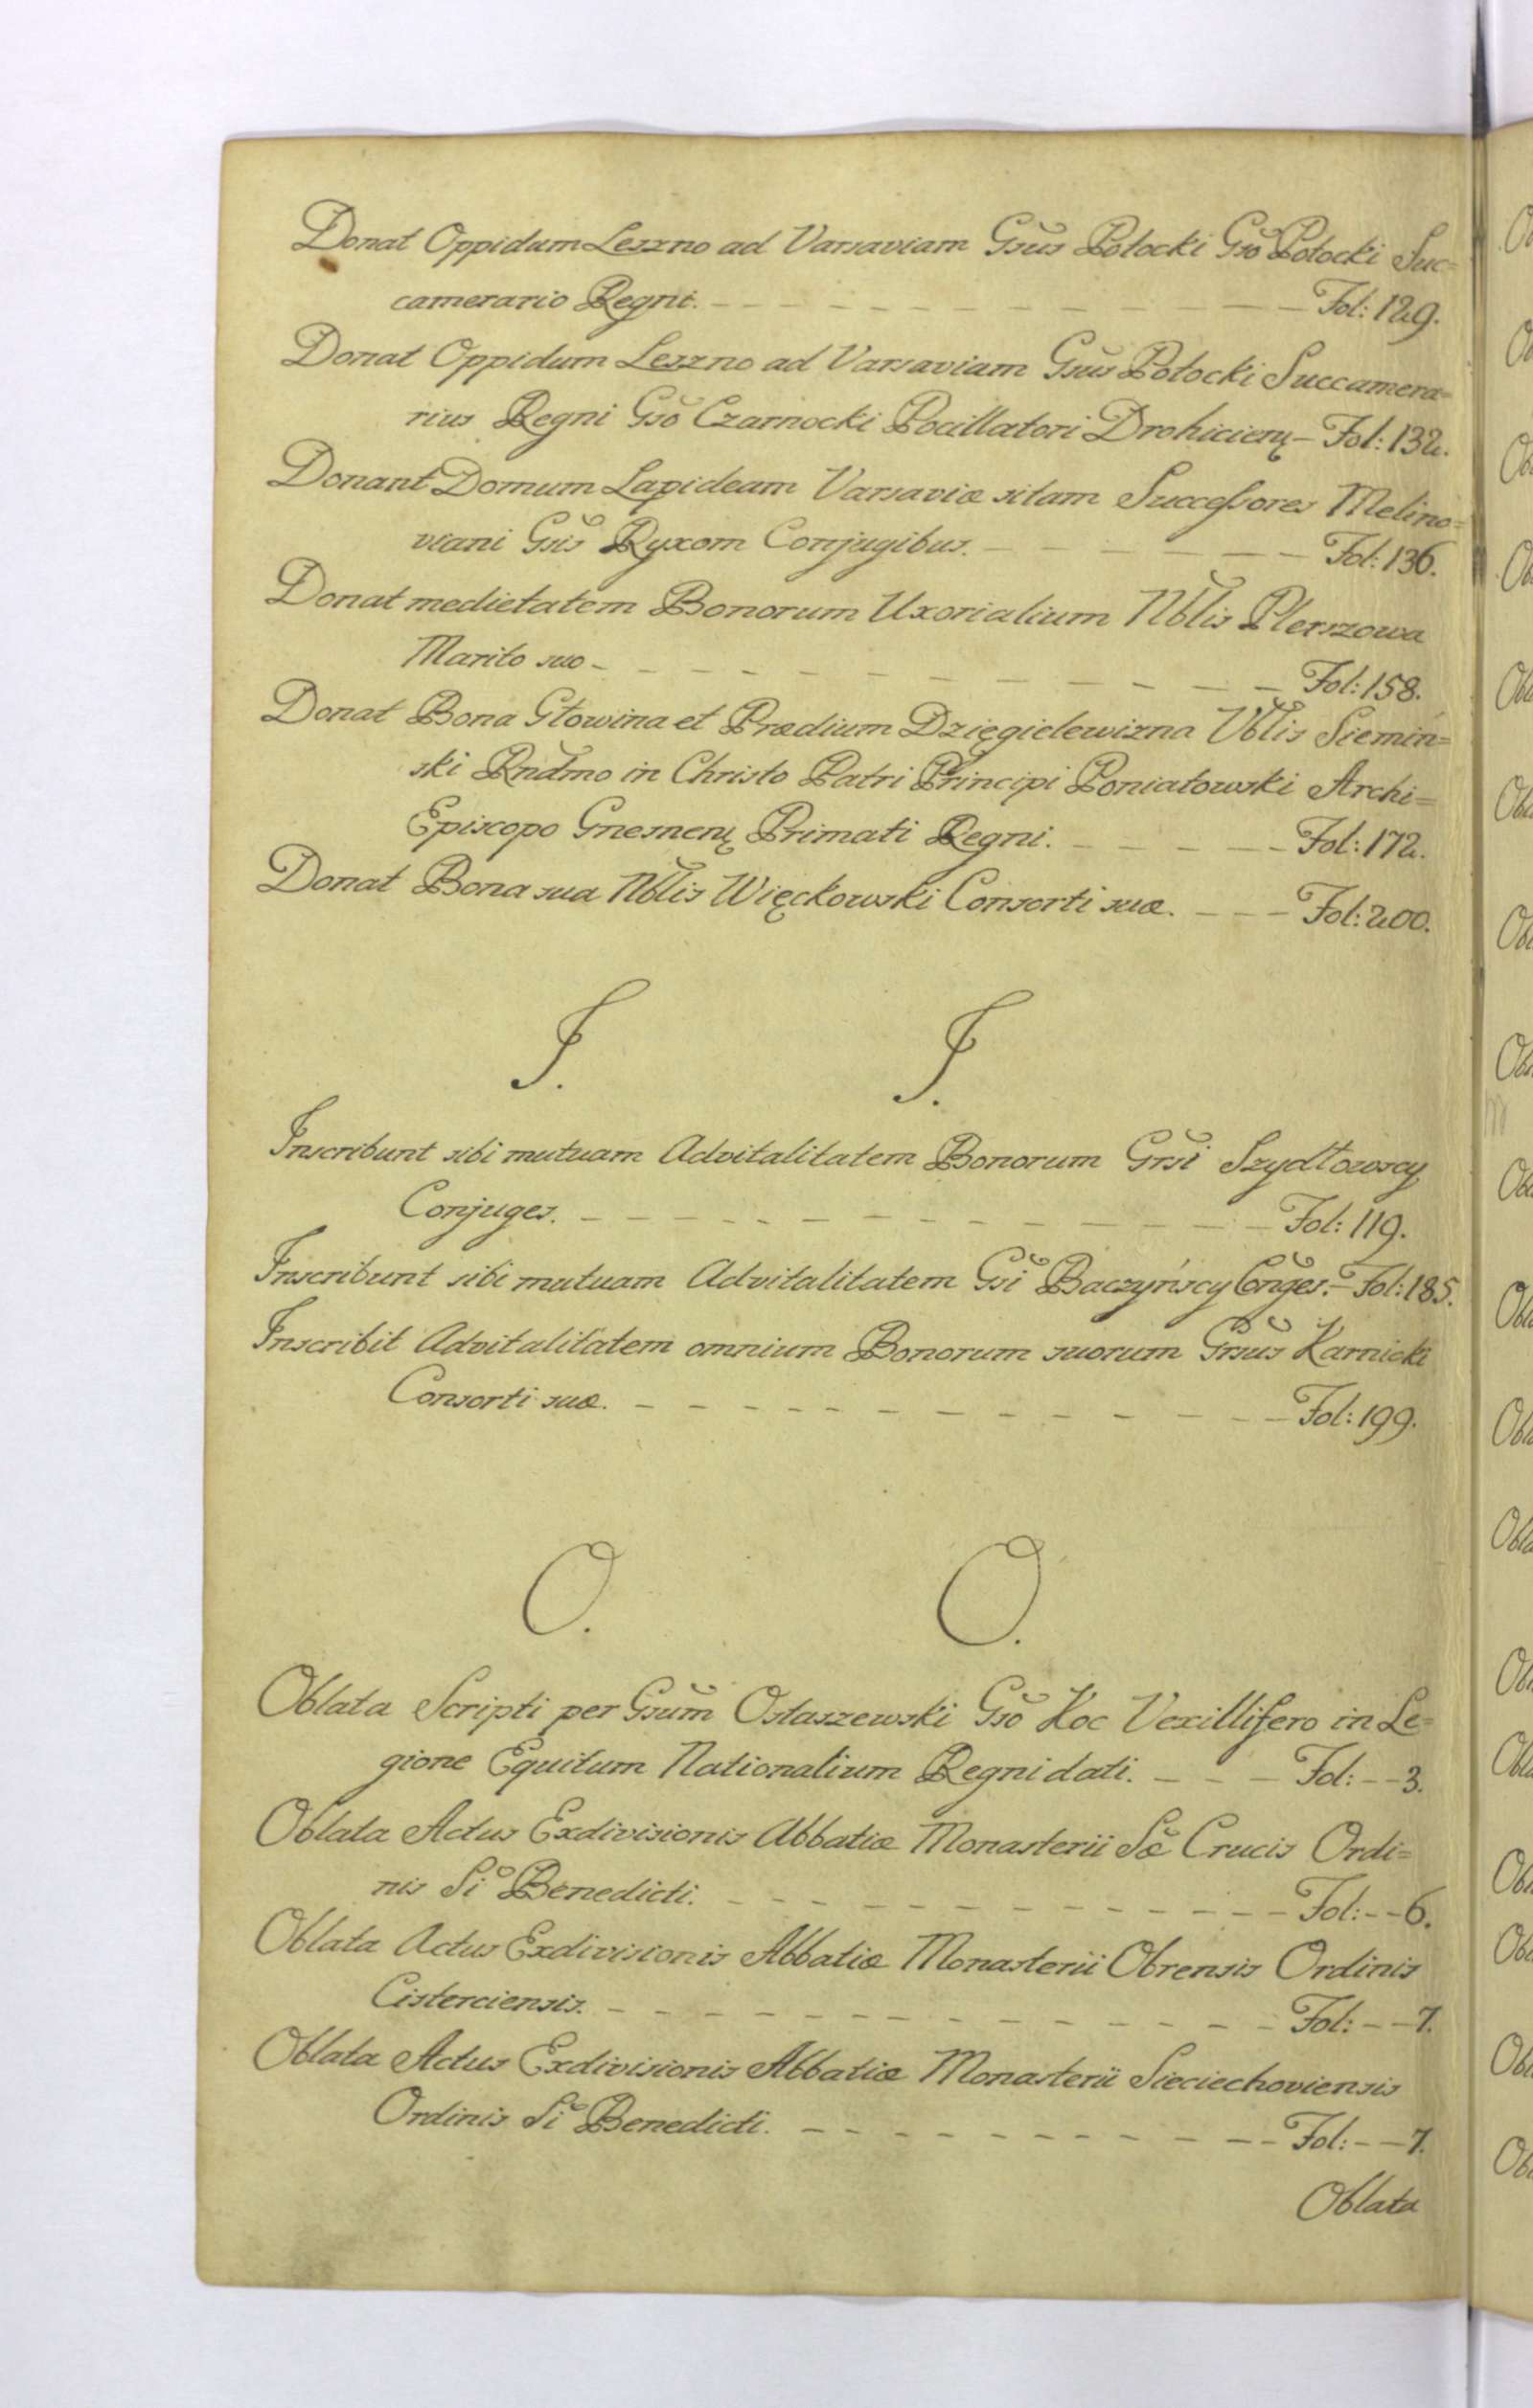 Donat Oppidum Leszno ad Varsaviam Gsũs Potocki Gsõ Potocki Suc=
camerario Regni. Fol: 129.
Donat Oppidum Leszno ad Varsaviam Gsũs Potocki Succamera=
rius Regni Gsõ Czarnocki Pocillatori Drohicieñ Fol: 132.
Donant Domum Lapideam Varsaviæ sitam Successores Melino=
viani Gsĩs Ryxom Conjugibus. Fol: 136.
Donat medietatem Bonorum Uxorialium Nblĩs Plerszowa
Marito suo Fol: 158.
Donat Bona Głowina et Prædium Dzięgielewizna Nblĩs Siemiń=
ski Rndm̃o in Christo Patri Principi Poniatowski Archi=
Episcopo Gnesneñ Primati Regni. Fol: 172.
Donat Bona sua Nblĩs Więckowski Consorti suæ. Fol: 200.
I. I.
Inscribunt sibi mutuam Advitalitatem Bonorum Grsĩ Szydłowscy
Conjuges. Fol: 119.
Inscribunt sibi mutuam Advitalitatem Gsĩ Baczyńscy Cnges̃. Fol: 185.
Inscribit Advitalitatem omnium Bonorum suorum Grsũs Karnicki
Consorti suæ. Fol: 199.
O. O.
Oblata Scripti per Gsũm Ostaszewski Gsõ Koc Vexillifero in Le=
gione Equitum Nationalium Regni dati. Fol: 3.
Oblata Actus Exdivisionis Abbatiæ Monasterii Sæ̃ Crucis Ordi=
nis Sĩ Benedicti. Fol: 6.
Oblata Actus Exdivisionis Abbatiæ Monasterii Obrensis Ordinis
Cisterciensis. Fol: 7.
Oblata Actus Exdivisionis Abbatiæ Monasterii Sieciechoviensis
Ordinis Sĩ Benedicti. Fol: 7.
Oblata